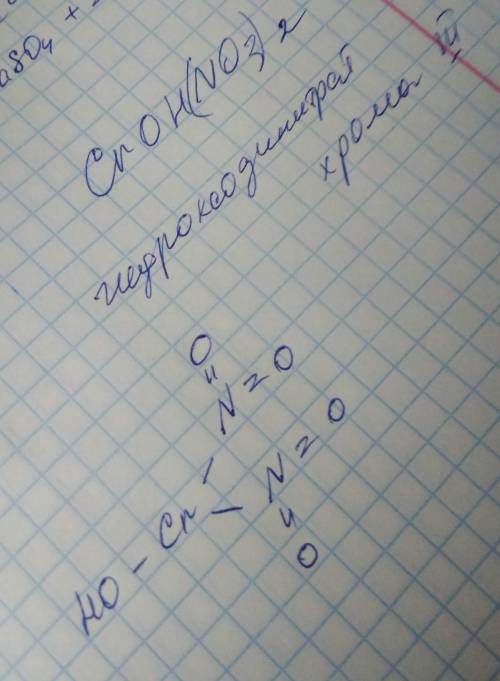 aSO₄ +
CrOH(NO₃)₂
гидроксодинитрат
хрома III
O
"
N=O
/
HO-Cr
\
N=O
"
O